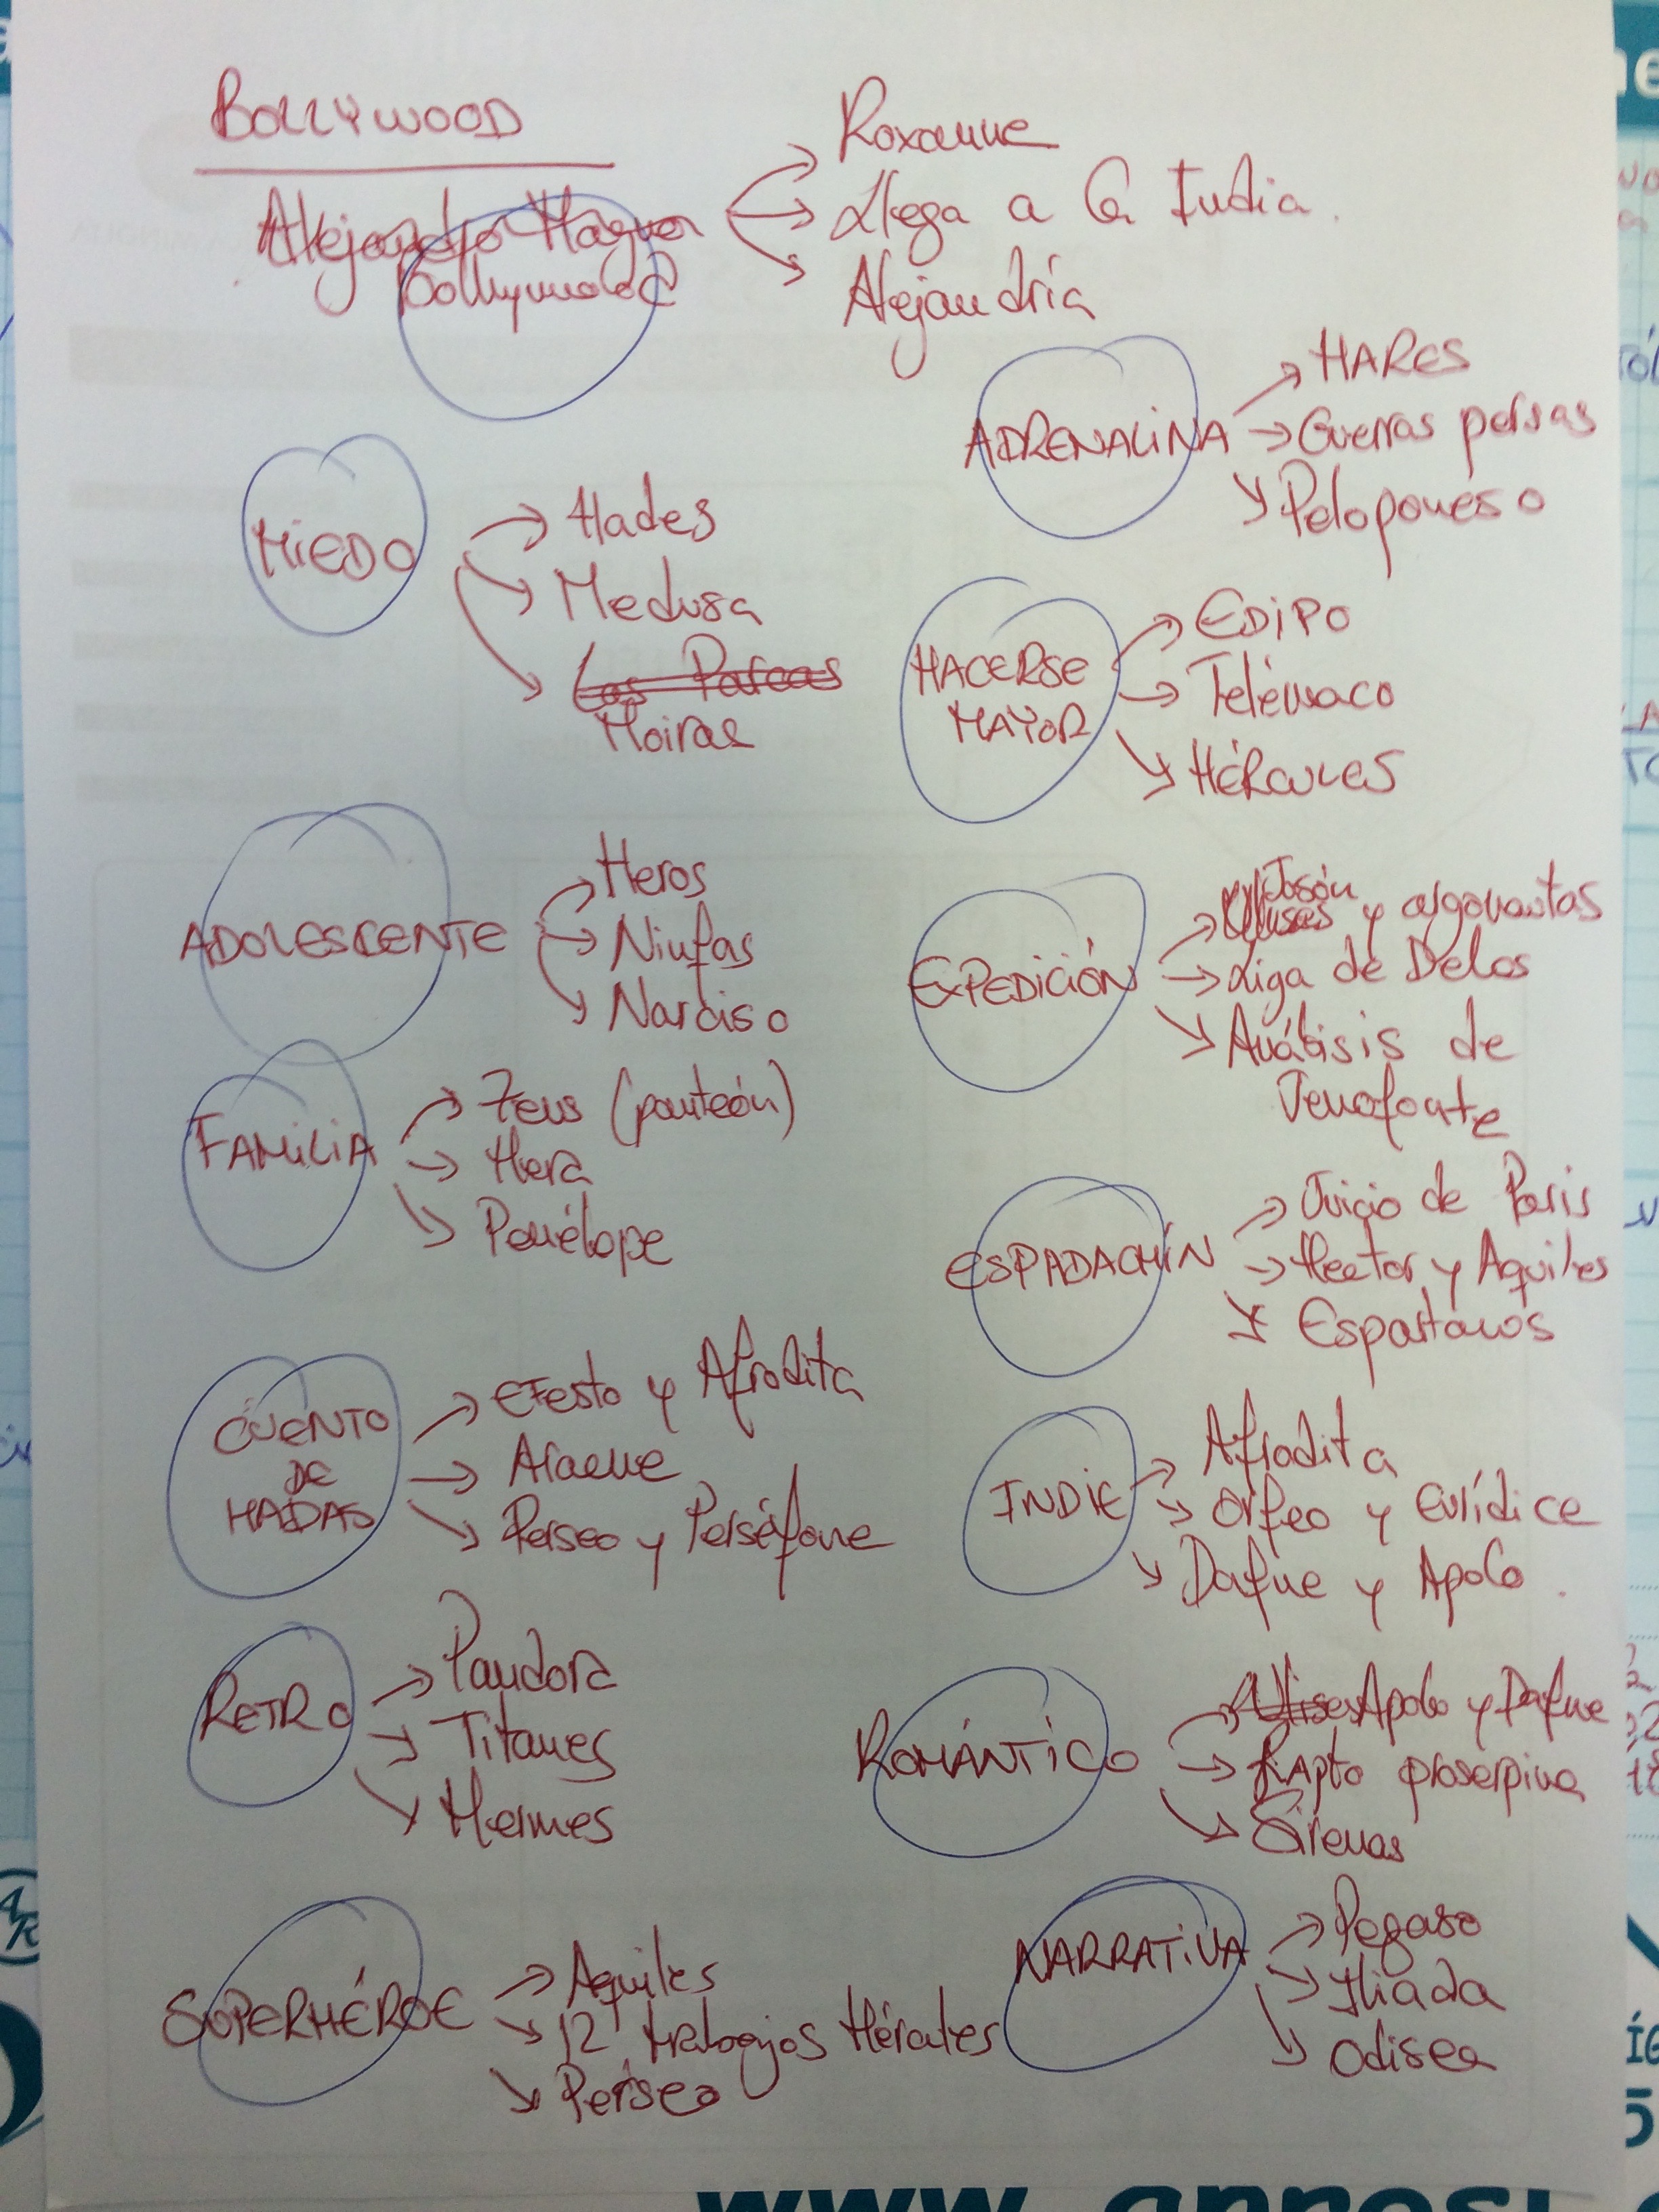 BOLLYWOOD
Alejandro Magno
Bollywood
Roxanne
Llega a la India.
Alejandría
ADRENALINA
MARES
Guerras persas
Peloponeso
MIEDO
Hades
Medusa
Las Parcas
Moiras
HACERSE
MAYOR
EDIPO
Telémaco
HÉRCULES
ADOLESCENTE
Heros
Ninfas
Narciso
EXPEDICIÓN
Jasón y argonautas
Liga de Delos
Análisis de
Jenofonte
FAMILIA
Zeus (panteón)
Hera
Penélope
ESPADACHÍN
Juicio de Paris
Hector y Aquiles
Espartanos
CUENTO
DE
HADAS
EFesto y Afrodita
Aracne
Perseo y Perséfone
INDIE
Afrodita
Orfeo y Eurídice
Dafne y Apolo.
RETRO
Pandora
Titanes
Hermes
ROMÁNTICO
Ulises Apolo y Dafne
RApto proserpina
Sirenas
SUPERHÉROE
Aquiles
12 trabajos Hércules
Perseo
NARRATIVA
Pegaso
Iliada
Odisea